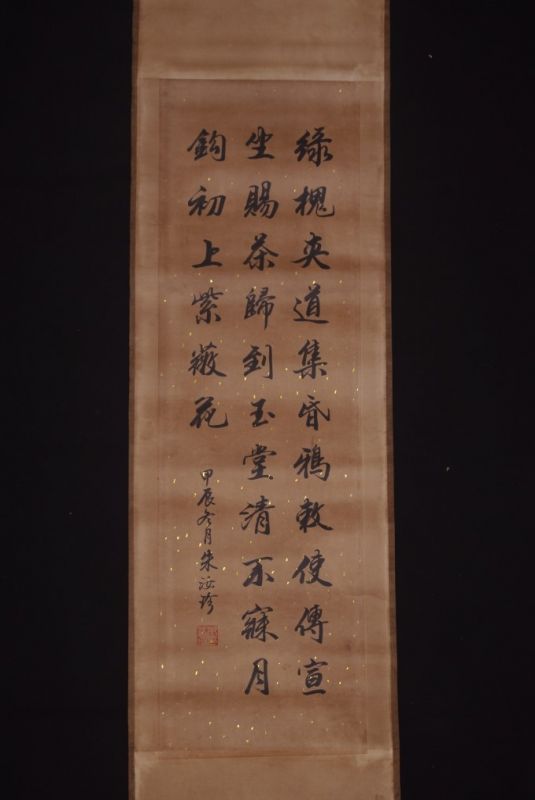 綠槐夾道集昏鴉敕使傳宣
坐賜茶歸到玉堂清不寐月
鈎初上紫薇花
甲辰冬月朱汝珍